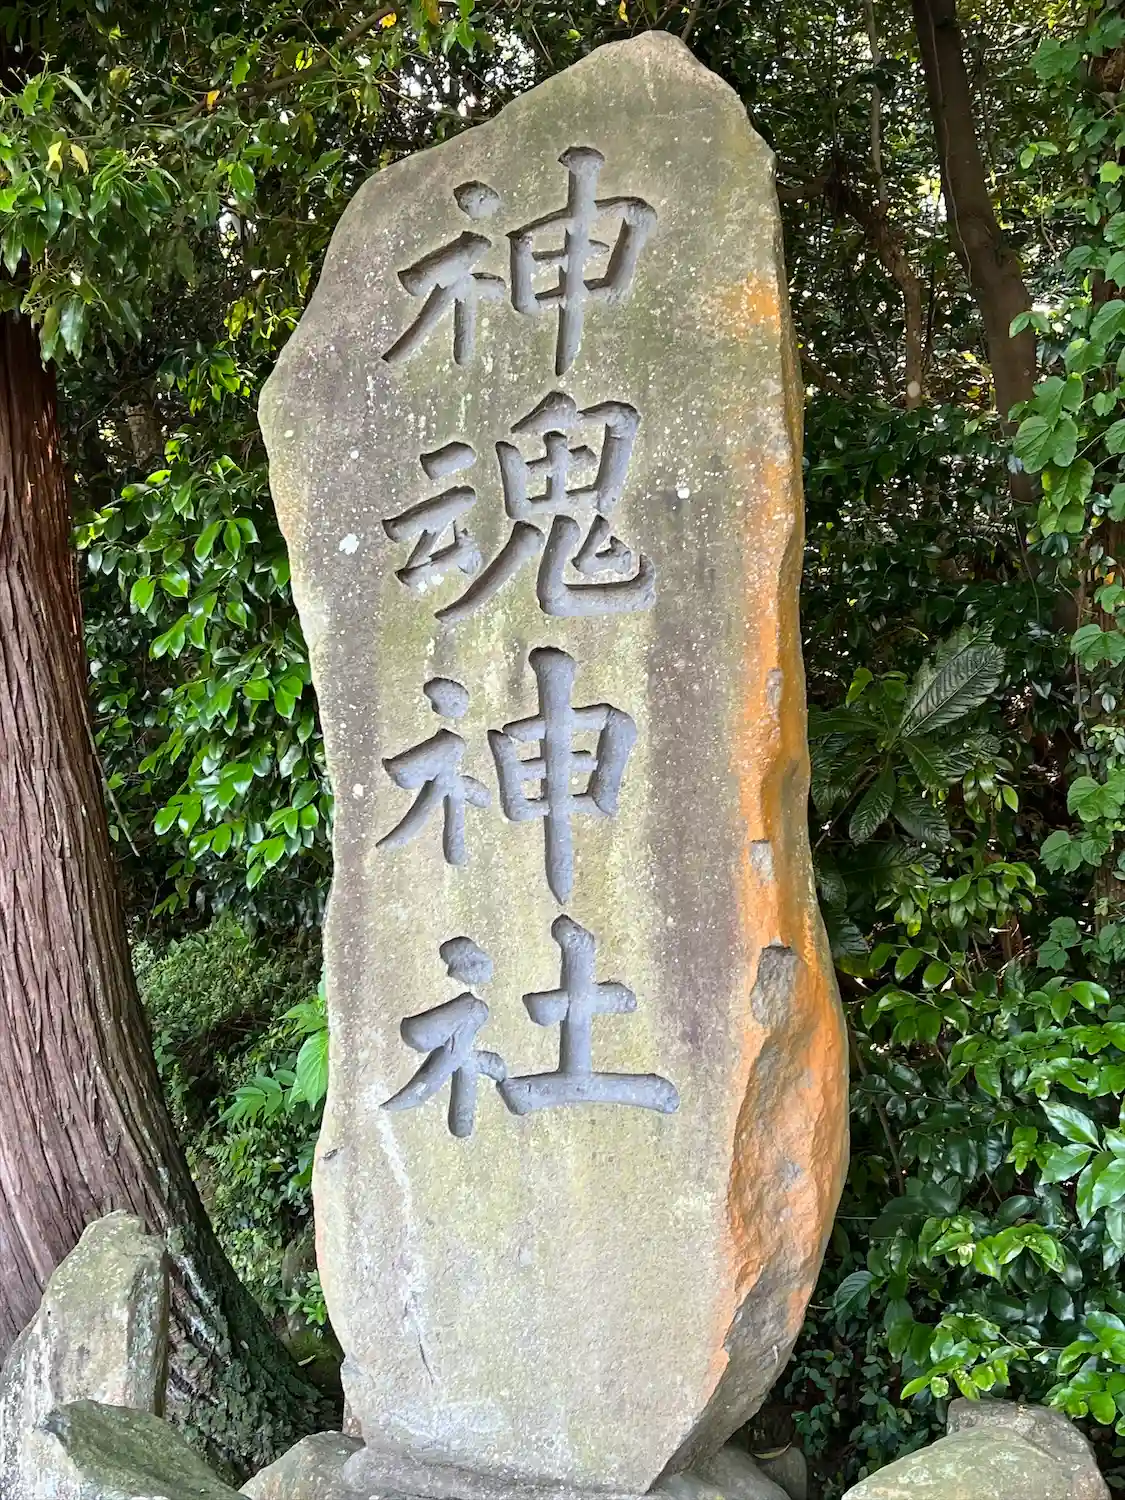 神魂神社